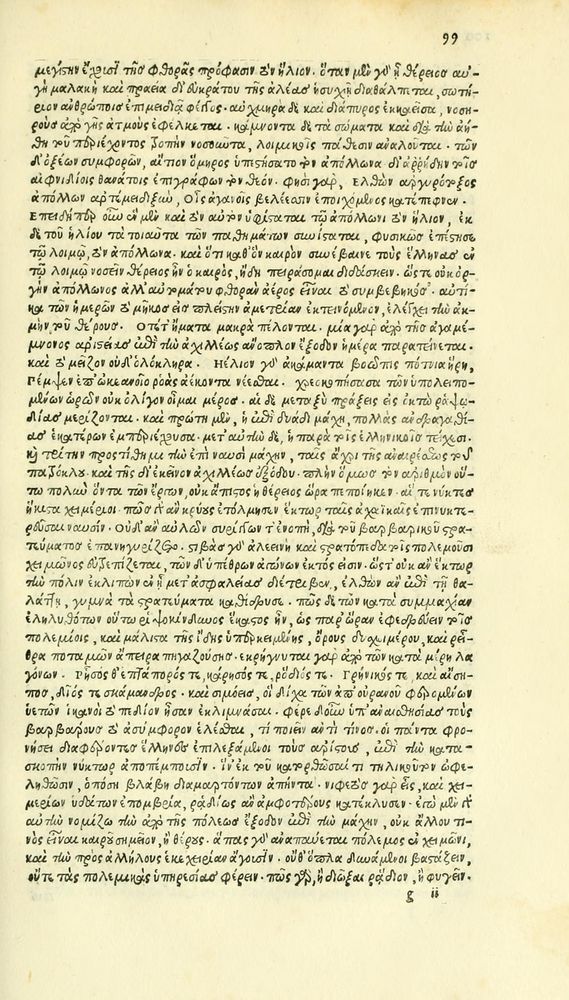 99
μεγίστην ἔχρισι τῆς φθορᾶς πρόφασιν τὸν ἥλιον. ὅταν μὲν γὸ ἡ θέρειος αὐ-
γὴ μαλακὴ καὶ πραεῖα δι' εὐκράτου τῆς ἀλέας ἡσυχῇ διαθάλπεται, σωτή-
ριον ἀνθρώποις ἐπιμειδιᾷ φέγγος. αὐχμηρὰ δὲ καὶ διάπυρος ἐκκαεῖσα, νοση-
ροὺς ἀπὸ γῆς ἀτμοὺς ἐφέλκεται. κάμνοντα δὲ τὰ σώματα καὶ διὰ τὴν ἀή-
θη τοῦ περιέχοντος τροπὴν νοσοῦντα, λοιμικοῖς πάθεσιν ἀναλοῦται. τῶν
δ' ὀξέων συμφορῶν, αἴτιον ὅμηρος ὑπεστήσατο τὸν ἀπόλλωνα διαῤῥήδην τοῖς
αἰφνιδίοις θανάτοις ἐπιγράφων τὸν θεόν. φησὶ γὰρ, Ελθὼν ἀργυρότοξος
ἀπόλλων ἀρτέμιδι ξὺν, Οἷς ἀγανοῖς βελέεσιν ἐποιχόμενος κατέπεφνεν.
Επειδήπερ οὖν εἷς μὲν καὶ τὸν αὐτὸν ὑφίσταται τῷ ἀπόλλωνι τὸν ἥλιον, ἐκ
δὲ τοῦ ἡλίου τὰ τοιαῦτα τῶν παθημάτων συνίσταται, φυσικῶς ἐπέστησε
τῷ λοιμῷ, τὸν ἀπόλλωνα. καὶ ὅτι καθ' ὃν καιρὸν συνέβαινε τοὺς ἕλληνας ἐν
τῷ λοιμῷ νοσεῖν θέρειος ἦν ὁ καιρὸς, ἤδη πειράσομαι διδάσκειν. ὥστε οὐκ ὀρ-
γὴν ἀπόλλωνος ἀλλ' αὐτόματον φθορὰν ἀέρος εἶναι τὸ συμβεβηκός. αὐτί-
κα τῶν ἡμερῶν τὸ μῆκος εἰς πλείστην ἀμετρίαν ἐκτεινόμενον, ἐλέγχει τὴν ἀκ-
μὴν τοῦ θέρους. Οτέ τ' ἤματα μακρὰ πέλονται. μία γὰρ ἀπὸ τῆς ἀγαμέ-
μνονος ἀριστείας ἐπὶ τὴν ἀχιλλέως ἄνοπλον ἔξοδον ἡμέρα παρατείνεται.
καὶ τὸ μεῖζον οὐδ' ὁλόκληρα. Ηέλιον γὸ ἀκάμαντα βοῶπις πότνια ἥρη,
Πέμψεν ἐπ' ὠκεανοῖο ῥοὰς ἀέκοντα νέεσθαι. χρεοκοπήσασα τῶν ὑπολειπο-
μένων ὡρῶν οὐκ ὀλίγον οἶμαι μέρος. αἱ δὲ μεταξὺ πράξεις εἰς ὀκτὼ ῥαψω-
δίας μερίζονται. καὶ πρώτη μὲν, ἡ ἐπὶ δυάδι μάχη, πολλὰς ἀνδραγαθί-
ας ἑκατέρων ἐμπεριέχουσα. μετ' αὐτὴν δὲ, ἡ παρὰ τοῖς ἑλληνικοῖς τείχεσι.
καὶ τρίτην προστίθημι τὴν ἐπὶ ναυσὶ μάχην, ταῖς ἄχρι τῆς ἀναιρέσεως τοῦ
πατρόκλου. καὶ τῆς δι' ἐκεῖνον ἀχιλλέως ἐξόδου. πλὴν ὅμως τὸν ἀριθμὸν οὕ-
τω πολὺν ὄντα τῶν ἔργων, οὐκ ἄπιστος ἡ θέρειος ὥρα πεποίηκεν. αἵ τε νύκτες
ἥκιστα χειμέριοι. πῶς ἐν ἂν κρύους ἐτόλμησεν ἕκτωρ ταῖς ἀχαϊκαῖς ἐπινυκτε-
ρεῦσαι ναυσίν. Οὐδ' ἂν αὐλῶν συρίγγων τ' ἐνοπὴ, διὰ τοῦ βαρβαρικοῦ στρα-
τεύματος ἐπανηγυρίζετο. στιβὰς γὸ ἀλεεινὴ καὶ στρατόπεδα τοῖς πολεμοῦσι
χειμῶνος εὐτρεπίζεται, τῶν δ' ὑπαίθρων ἀγώνων ἐκτός εἰσιν. ὥστ' οὐκ ἂν ἕκτωρ
τὴν πόλιν ἐκλιπὼν ἐν ᾗ μετ' ἀσφαλείας διέτριβον, ἐλθὼν ἂν ἐπὶ τῇ θα-
λάττῃ, γυμνὰ τὰ στρατεύματα καθίδρυσε. πῶς δὲ τῶν κατὰ συμμαχίαν
ἐληλυθότων οὕτω ῥιψοκίνδυνος ἕκαστος ἦν, ὡς παρ' ὥραν ἐφεδρεύειν τοῖς
πολεμίοις, καὶ μάλιστα τῆς ἴδης ὑπερκειμένης, ὄρους δυσχειμέρου, καὶ ῥεῖ-
θρα ποταμῶν ἄπειρα πηγαζούσης. ἐκρήγνυται γὰρ ἀπὸ τῶν κατὰ μέρη λα
γόνων. Ρῆσός θ' ἑπτάπορός τε, κάρησός τε, ῥοδίός τε. Γρήνικός τε, καὶ αἴση-
πος, δῖός τε σκάμανδρος. καὶ σιμόεις, οἳ δίχα τῶν ἀπ' οὐρανοῦ φερομένων
ὑετῶν ἱκανοὶ τὸ πεδίον ἦσαν ἐκλιμνάσαι. φέρε δ' οὖν ὑπ' ἀναισθησίας τοὺς
βαρβάρους τὸ ἀσύμφορον ἑλέσθαι, τί ποιεῖν ἀντί τινος. οἱ πάντα φρο-
νήσει διαφέροντες ἕλληνες ἐπιλεξάμενοι τοὺς ἀρίστους, ἐπὶ τὴν κατα-
σκοπὴν νύκτωρ ἀποπέμπουσιν. ἵν' ἐκ τοῦ κατορθῶσαι τί τηλικοῦτον ὠφε-
ληθῶσιν, ὁπόση βλάβη διαμαρτόντων ἀπήντα. νιφετὸς γὰρ εἷς, καὶ χει-
μερίων ὑδάτων ἐπομβρία, ῥᾳδίως ἂν ἀμφοτέρους κατέκλυσεν. ἐγὼ μὲν ἐν
αὐτὴν νομίζω τὴν ἀπὸ τῆς πόλεως ἔξοδον ἐπὶ τὴν μάχην, οὐκ ἄλλου τι-
νὸς εἶναι καιροῦ σημεῖον, ἢ θέρους. ἅπας γὸ ἀναπαύεται πόλεμος ἐν χειμῶνι,
καὶ τὴν πρὸς ἀλλήλους ἐκεχειρίαν ἄγουσιν. οὔθ' ὅπλα δυνάμενοι βαστάζειν,
οὔτε τὰς πολεμικὰς ὑπηρεσίας φέρειν. πῶς γὰρ, ἢ διῶξαι ῥᾴδιον, ἢ φυγεῖν.
g ii